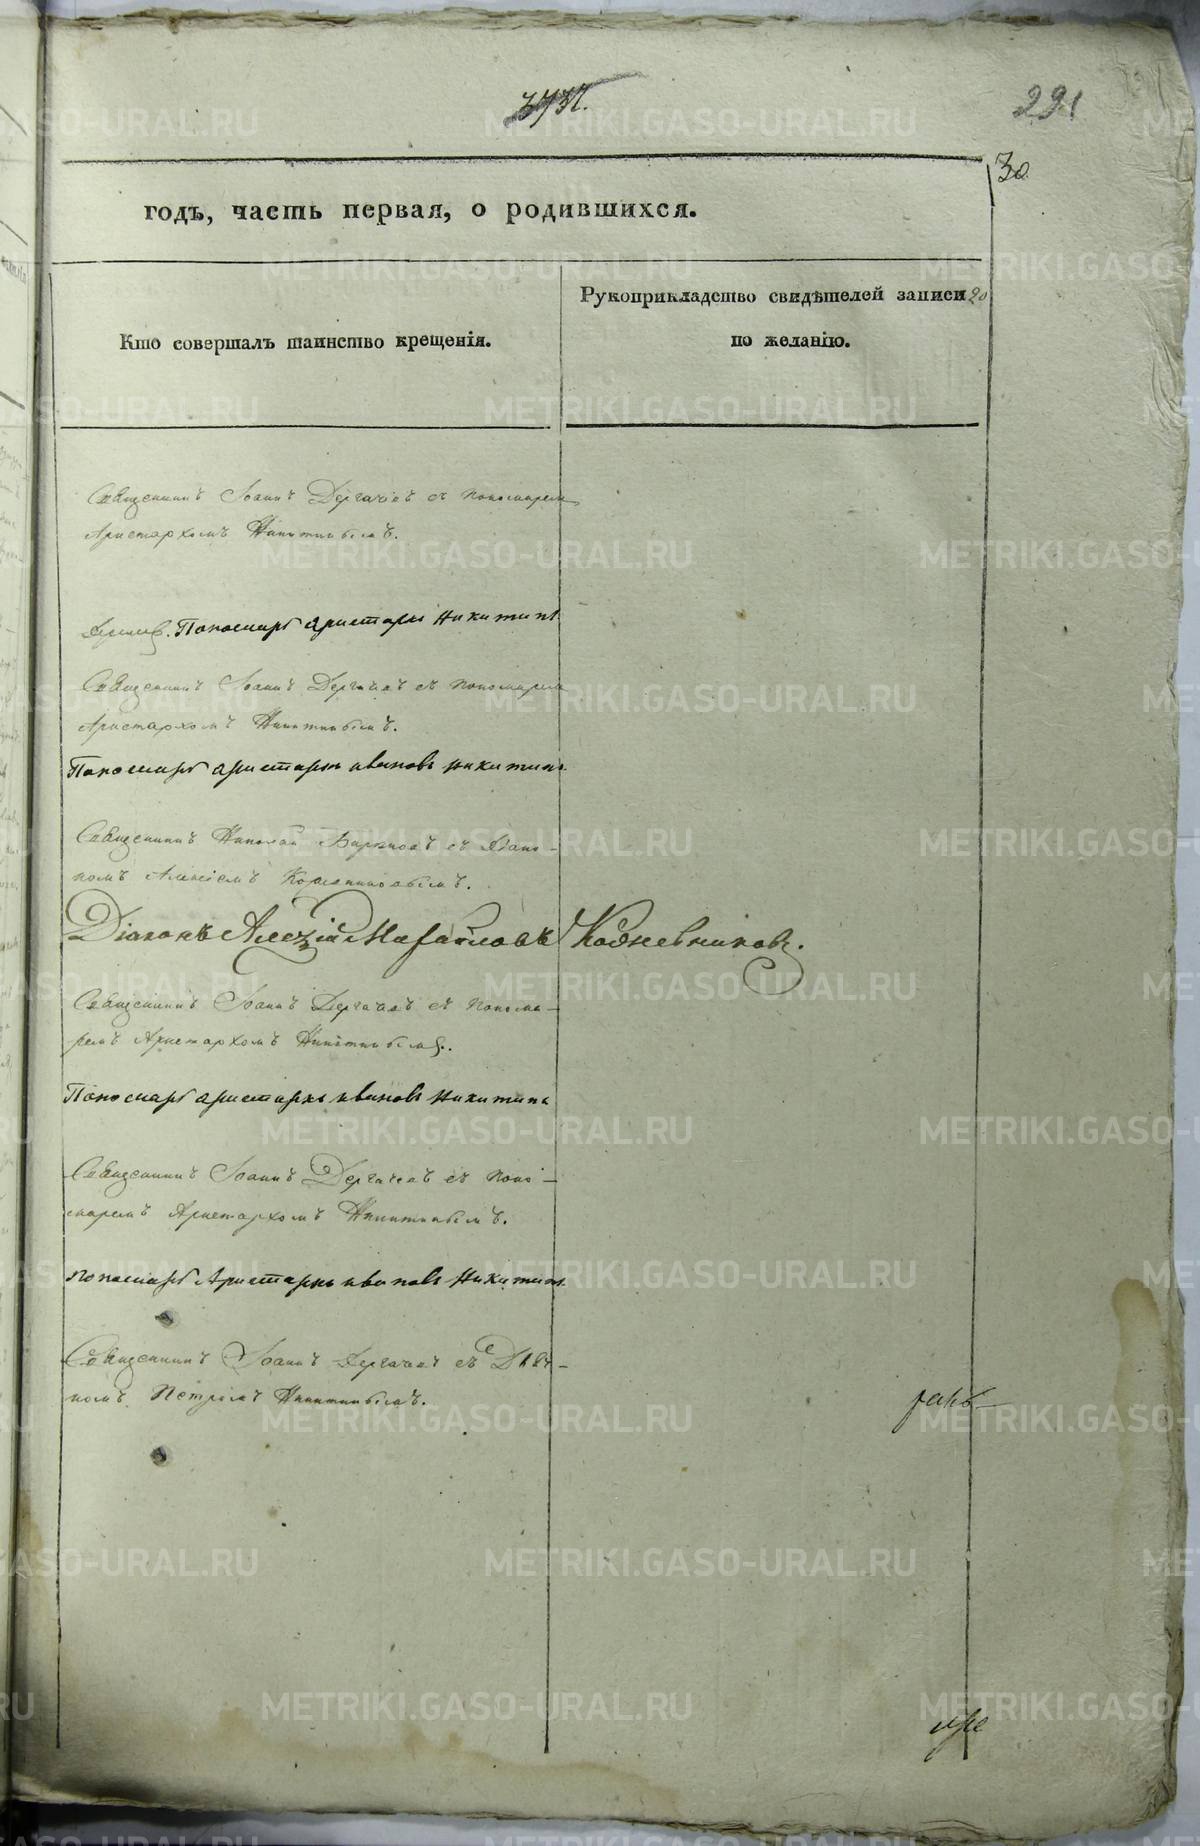 291
30
годъ, часть первая, о родившихся.
Кто совершалъ таинство крещенія.
Рукоприкладство свидѣтелей записи 20
по желанію.
Священникъ Іоаннъ Дергачевъ съ пономаремъ
Аристархомъ Никитинымъ.
Пономарь аристархъ никитинъ
Священникъ Іоаннъ Дергачевъ съ пономаремъ
Аристархомъ Никитинымъ.
Пономарь аристархъ ивановъ никитинъ
Священникъ Николай съ Діако-
номъ Алексіемъ
Діаконъ Алезій Михайловъ Кожевниковъ.
Священникъ Іоаннъ Дергачевъ съ понома-
ремъ Аристархомъ Никитинымъ.
Пономарь аристархъ ивановъ никитинъ
Священникъ Іоаннъ Дергачевъ съ поно-
маремъ Аристархомъ Никитинымъ.
пономарь Аристархъ ивановъ никитинъ
Священникъ Іоаннъ Дергачевъ съ
комъ Петромъ Никитинымъ.
METRIKI.GASO-URAL.RU